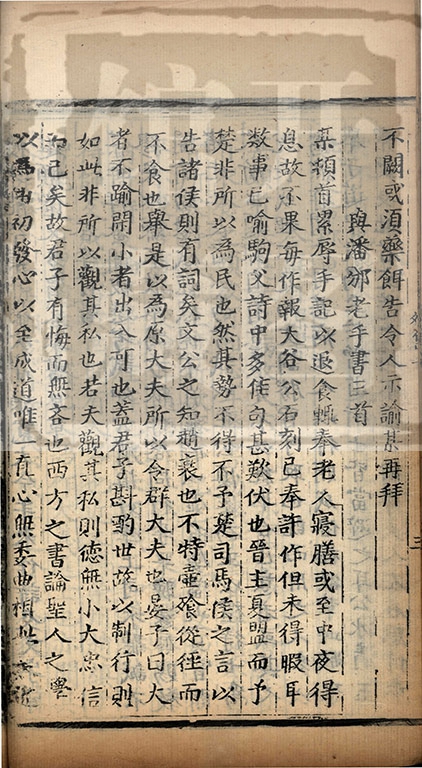 不闕或須藥餌告令人示諭某再拜
與潘邠老手書三首
某頓首累辱手記以退食輒奉老人寢膳或至中夜得
息故不果每作報大谷公石刻已奉許作但未得暇耳
數事已喻駒父詩中多佳句甚歎伏也晉主夏盟而予
楚非所以為民也然其勢不得不予楚司馬侯之言以
告諸侯則有詞矣文公之知趙衰也不特壺飧從徑而
不食也舉是以為原大夫所以令群大夫也晏子曰大
者不踰閑小者出入可也蓋君子斟酌世故以制行則
如此非所以觀其私也若夫觀其私則德無小大忠信
而已矣故君子有悔而無吝也西方之書論聖人之學
以為由初發心以至成道唯一直心無委曲相